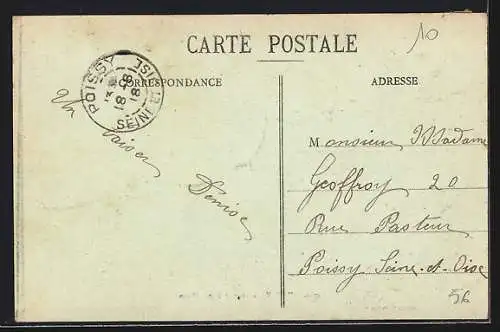 CARTE POSTALE
10
CORRESPONDANCE
ADRESSE
POISSY
18-8
18
SEINE ET OISE
Un baiser
Denise
Monsieur Madame
Geoffroy 20
Rue Pasteur
Poissy Seine-et-Oise